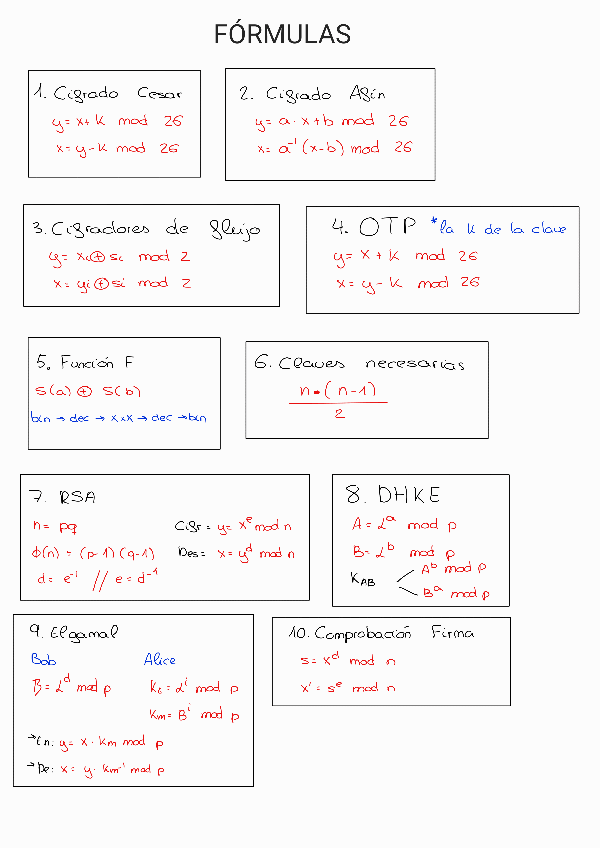 FÓRMULAS
1. Cifrado Cesar
y = x + k mod 26
x = y - k mod 26
2. Cifrado Afín
y = a · x + b mod 26
x = a⁻¹ (x - b) mod 26
3. Cifradores de flujo
y = xi ⊕ si mod 2
x = yi ⊕ si mod 2
4. OTP *la k de la clave
y = x + k mod 26
x = y - k mod 26
5. Función F
S(a) ⊕ S(b)
bin → dec → xxx → dec → bin
6. Claves necesarias
n · (n - 1)
2
7. RSA
n = pq
Φ(n) = (p-1) (q-1)
d = e⁻¹ // e = d⁻¹
Cifr = y = xᵉ mod n
Des = x = yᵈ mod n
8. DHKE
A = αᵃ mod p
B = αᵇ mod p
KAB
Aᵇ mod p
Bᵃ mod p
9. Elgamal
Bob
B = αᵈ mod p
Alice
KE = αⁱ mod p
Km = Bⁱ mod p
→ En: y = x · Km mod p
→ De: x = y · Km⁻¹ mod p
10. Comprobación Firma
s = xᵈ mod n
x' = sᵉ mod n